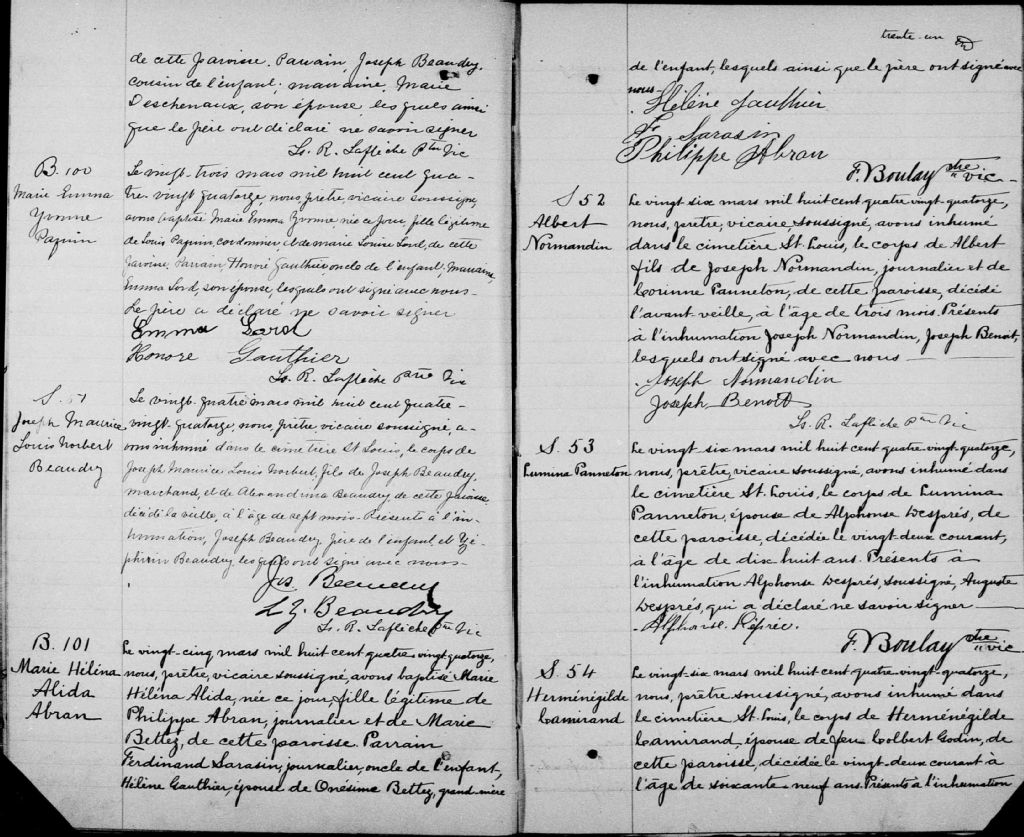 de cette paroisse. Parrain, Joseph Beaudry,
cousin de l'enfant; marraine, Marie
Deschenaux, son épouse, lesquels ainsi
que le père ont déclaré ne savoir signer
Ls. R. Laflèche Ptre Vic
B. 100
Marie Emma
Yvonne
Paquin
Le vingt-trois mars mil huit cent qua-
tre-vingt quatorze, nous, prêtre, vicaire soussigné,
avons baptisé Marie Emma Yvonne, née ce jour, fille légitime
de Louis Paquin, cordonnier, et de Marie Louise Lord, de cette
paroisse. Parrain Honoré Gauthier, oncle de l'enfant. Marraine,
Emma Lord, son épouse, lesquels ont signé avec nous-
Le père a déclaré ne savoir signer
Emma Lord
Honore Gauthier
Ls. R. Laflèche Ptre Vic
S. 51
Joseph Maurice
Louis Norbert
Beaudry
Le vingt-quatre mars mil huit cent quatre-
vingt-quatorze, nous, prêtre, vicaire soussigné, a-
vons inhumé dans le cimetière St Louis, le corps de
Joseph Maurice Louis Norbert, fils de Joseph Beaudry,
marchand, et de Alexandrina Beaudry de cette paroisse
décédé la veille, à l'âge de sept mois. Présents à l'in-
humation, Joseph Beaudry père de l'enfant et Zé-
phirin Beaudry lesquels ont signé avec nous-
Jos. Beaudry
L. Z. Beaudry
Ls. R. Laflèche Ptre Vic
B. 101
Marie Hélèna
Alida
Abran
Le vingt-cinq mars mil huit cent quatre-vingt-quatorze,
nous, prêtre, vicaire soussigné, avons baptisé Marie
Hélèna Alida, née ce jour, fille légitime de
Philippe Abran, journalier et de Marie
Bettez, de cette paroisse. Parrain
Ferdinand Sarasin, journalier, oncle de l'enfant,
Hélène Gauthier, épouse de Onésime Bettez, grand-mère
trente-un
de l'enfant, lesquels ainsi que le père ont signé avec
nous-
Hélène Gauthier
F. Sarasin
Philippe Abran
F. Boulay ptre vic-
S 52
Albert
Normandin
Le vingt six mars mil huit cent quatre vingt-quatorze,
nous, prêtre, vicaire, soussigné, avons inhumé
dans le cimetière St. Louis, le corps de Albert
fils de Joseph Normandin, journalier et de
Corinne Panneton, de cette paroisse, décédé
l'avant veille, à l'âge de trois mois. Présents
à l'inhumation Joseph Normandin, Joseph Benoit,
lesquels ont signé avec nous
Joseph Normandin
Joseph Benoit
Ls. R. Laflèche Ptre Vic
S. 53
Lumina Panneton
Le vingt-six mars mil huit cent quatre-vingt-quatorze,
nous, prêtre, vicaire soussigné, avons inhumé dans
le cimetière St. Louis, le corps de Lumina
Panneton, épouse de Alphonse Després, de
cette paroisse, décédée le vingt-deux courant,
à l'âge de dix-huit ans. Présents à
l'inhumation Alphonse Després, soussigné, Auguste
Després, qui a déclaré ne savoir signer
Alphonse
F. Boulay ptre vic
S 54
Herménégilde
Camirand
Le vingt-six mars mil huit cent quatre-vingt-quatorze,
nous, prêtre soussigné, avons inhumé dans
le cimetière St. Louis, le corps de Herménégilde
Camirand, épouse de feu Colbert Godin, de
cette paroisse, décédée le vingt-deux courant à
l'âge de soixante-neuf ans. Présents à l'inhumation